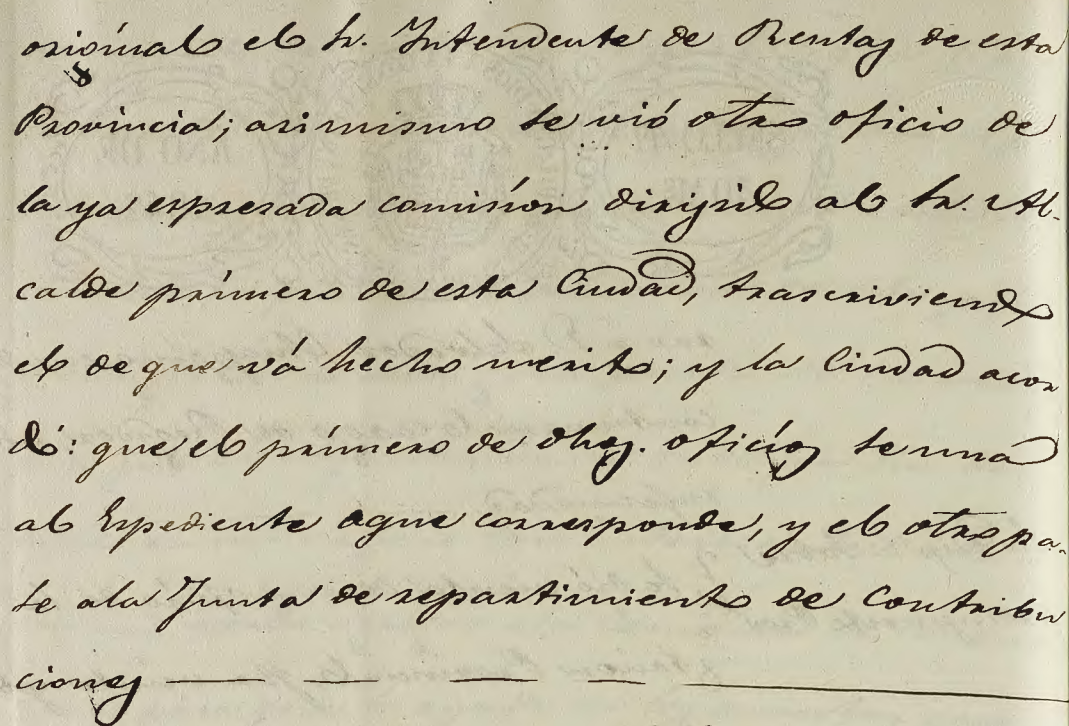 original el Sr. Intendente de Rentas de esta
Provincia; asimismo se vió otro oficio de
la ya espresada comision dirijido al Sr. Al-
calde primero de esta Ciudad, trascriviendo
el de que vá hecho merito; y la Ciudad acor
dó: que el primero de dhos. oficios se una
al Espediente aque corresponde, y el otro pa-
se ala Junta de repartimiento de Contribu
ciones